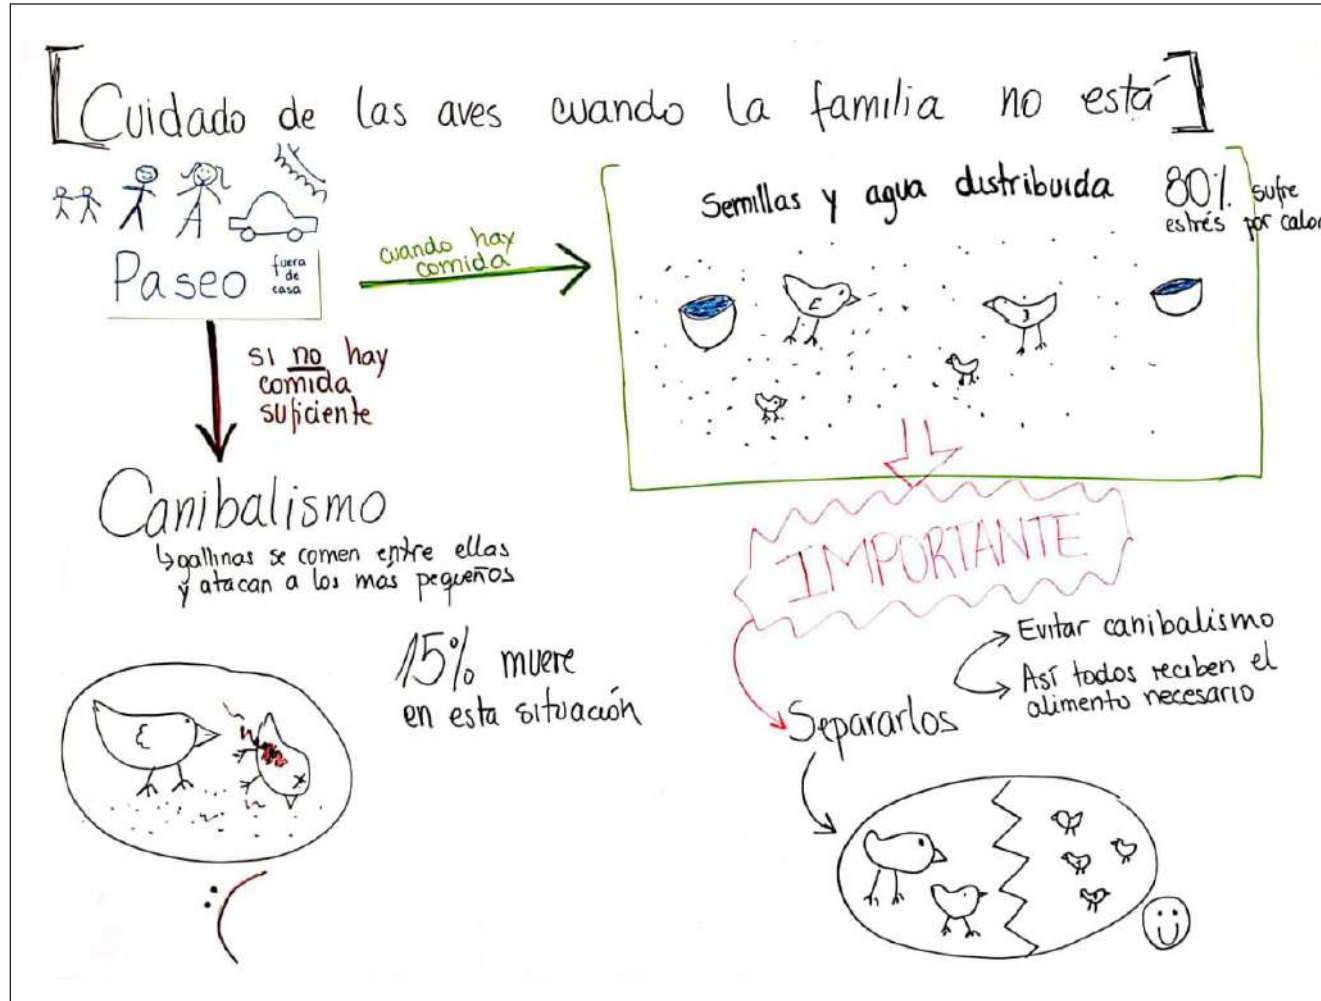 Cuidado de las aves cuando la familia no está
Paseo
fuera
de
casa
cuando hay
comida
Semillas y agua distribuida
80% sufre
estrés por calor
si no hay
comida
suficiente
Canibalismo
gallinas se comen entre ellas
y atacan a los más pequeños
15% muere
en esta situación
IMPORTANTE
Separarlos
Evitar canibalismo
Así todos reciben el
alimento necesario